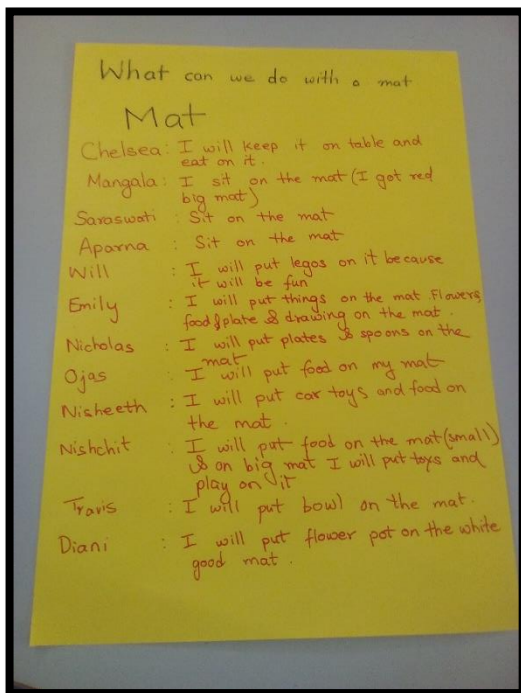 What can we do with a mat
Mat
Chelsea : I will keep it on table and
eat on it.
Mangala : I sit on the mat (I got red
big mat)
Saraswati : Sit on the mat
Aparna : Sit on the mat
Will : I will put legos on it because
it will be fun
Emily : I will put things on the mat. Flowers,
food & plate & drawing on the mat.
Nicholas : I will put plates & spoons on the
mat
Ojas : I will put food on my mat
Nisheeth : I will put car toys and food on
the mat.
Nishchit : I will put food on the mat (small)
& on big mat I will put toys and
play on it
Travis : I will put bowl on the mat.
Diani : I will put flower pot on the white
good mat.